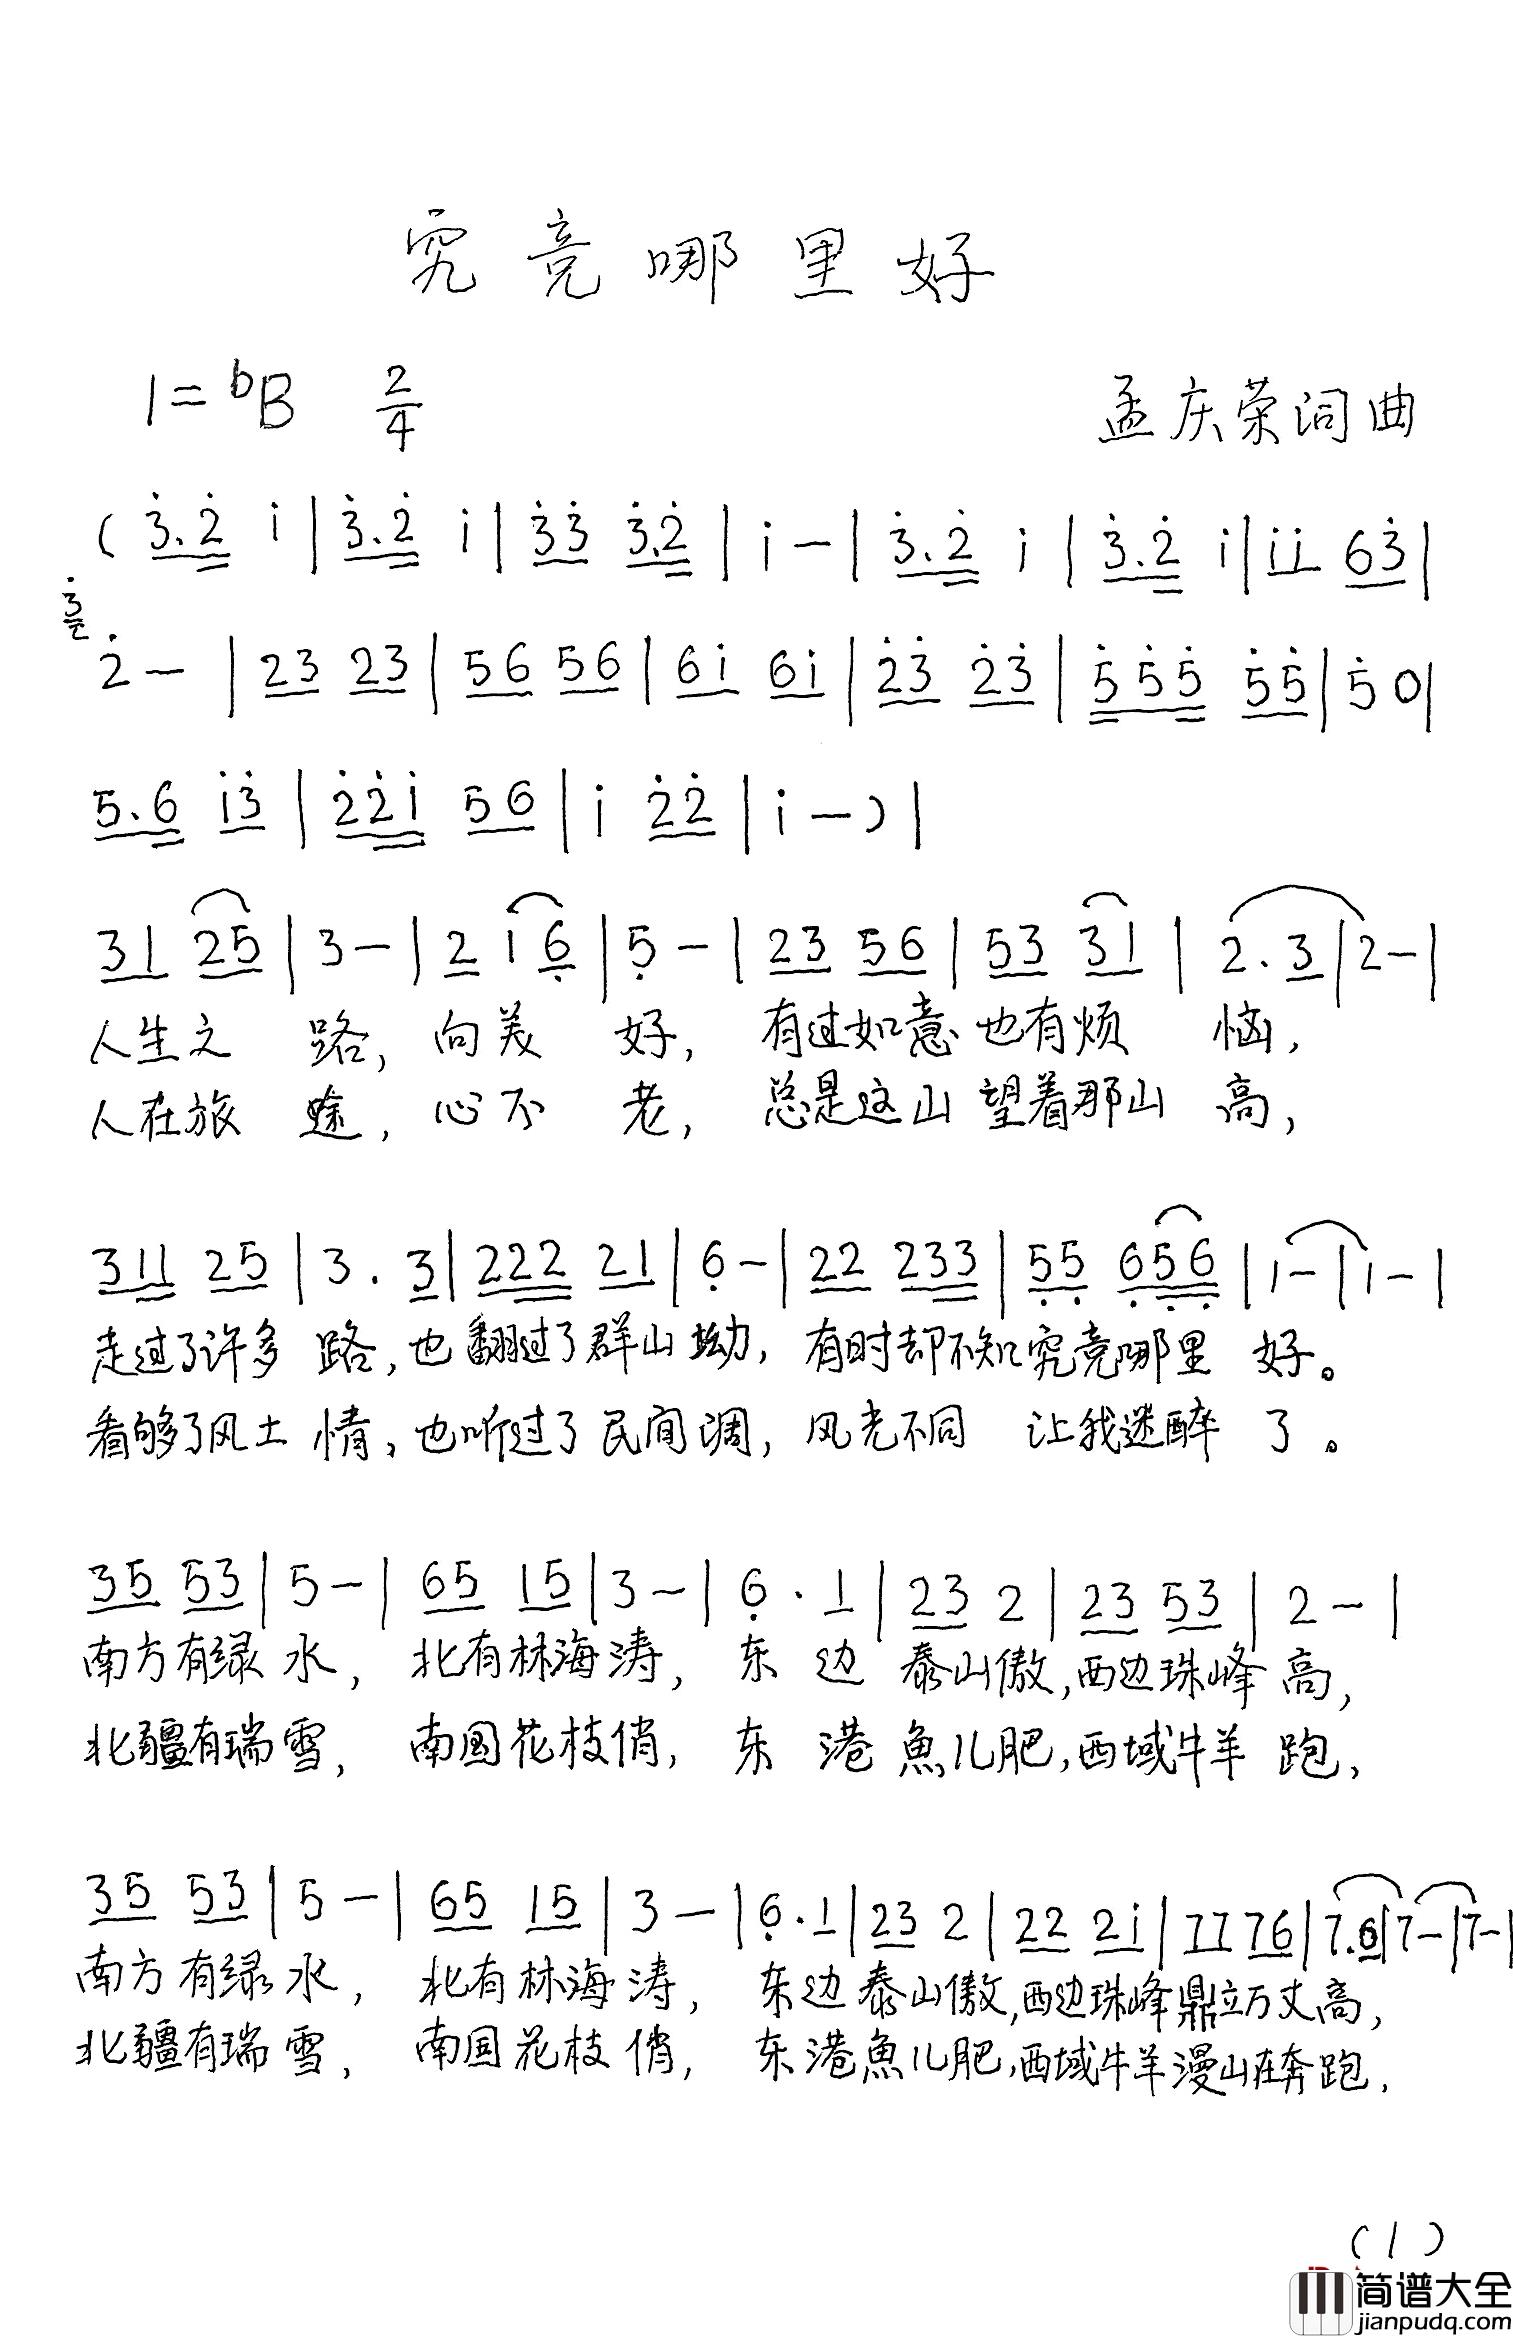 究竟哪里好
1=ᵇB 2/4 孟庆荣词曲
( 3̇.2̇ i | 3̇.2̇ i | 3̇3̇ 3̇.2̇ | i - | 3̇.2̇ i | 3̇.2̇ i | ii 63̇ |
3̇ 2̇ - | 23 23 | 56 56 | 6i 6i | 2̇3̇ 2̇3̇ | 5̇5̇5̇ 5̇5̇ | 5̇ 0 |
5.6 i3̇ | 2̇2̇i 56 | i 2̇2̇ | i - ) |
31 25 | 3 - | 2 1 6̣ | 5̣ - | 23 56 | 53 31 | 2.3 | 2 - |
人生之 路, 向美 好, 有过如意也有烦 恼,
人在旅 途, 心不 老, 总是这山望着那山 高,
311 25 | 3 . 3 | 222 21 | 6̣ - | 22 233 | 5̣5̣ 6̣5̣6̣ | 1 - | 1 - |
走过了许多 路, 也翻过了群山坳, 有时却不知究竟哪里 好。
看够了风土 情, 也听过了民间调, 风光不同 让我迷醉 了。
35 53 | 5 - | 65 15 | 3 - | 6̣ . 1 | 23 2 | 23 53 | 2 - |
南方有绿 水, 北有林海涛, 东 边 泰山傲, 西边珠峰 高,
北疆有瑞雪, 南国花枝俏, 东 港 魚儿肥, 西域牛羊 跑,
35 53 | 5 - | 65 15 | 3 - | 6̣.1 | 23 2 | 22 2i | 77 76 | 7.6 | 7 - | 7 - |
南方有绿水, 北有林海涛, 东边泰山傲, 西边珠峰鼎立万丈高,
北疆有瑞雪, 南国花枝俏, 东港魚儿肥, 西域牛羊漫山在奔跑,
(1)
简谱大全
jianpudq.com